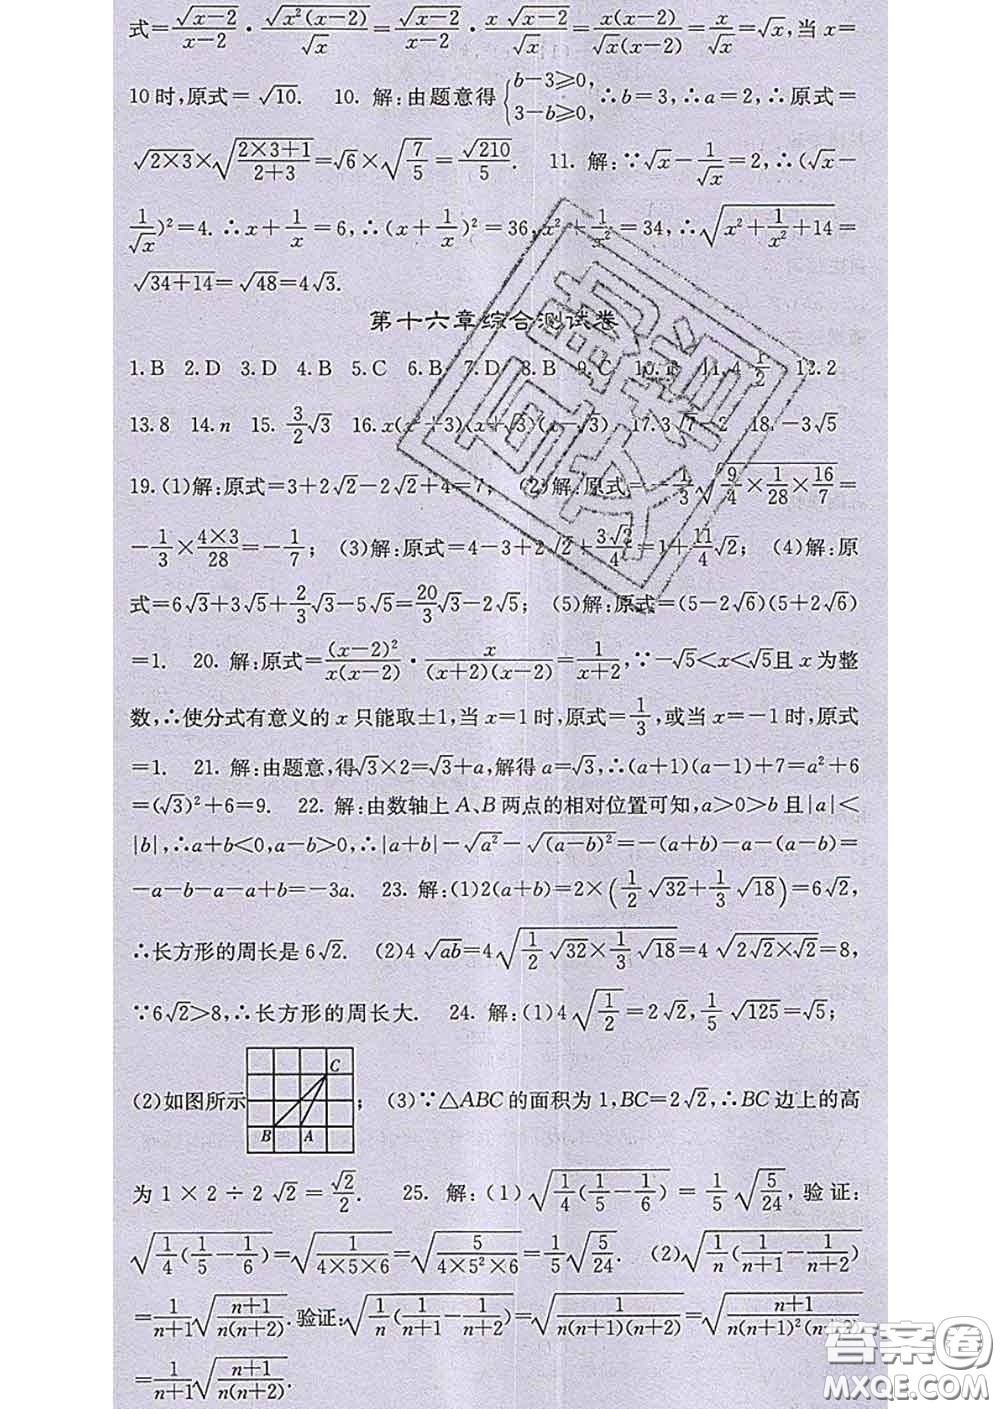 式=√(x-2)/(x-2)·√(x²(x-2))/√x=√(x-2)/(x-2)·x√(x-2)/√x=x(x-2)/(√x(x-2))=x/√x=√x,当 x=
10时,原式=√10. 10. 解:由题意得{b-3≥0, 3-b≥0, ∴b=3,∴a=2,∴原式=
√(2×3)×√((2×3+1)/(2+3))=√6×√(7/5)=√210/5. 11. 解:∵√x-1/√x=2,∴(√x-
1/√x)²=4. ∴x+1/x=6,∴(x+1/x)²=36,x²+1/x²=34,∴√(x²+1/x²+14)=
√(34+14)=√48=4√3.
第十六章综合测试卷
1.B 2.D 3.D 4.B 5.C 6.B 7.D 8.B 9.C 10. 11.4 1/2 12.2
13.8 14.n 15. 3/2√3 16.x(x²+3)(x+√3)(x-√3) 17.3√7-2 18.-3√5
19.(1)解:原式=3+2√2-2√2+4=7; (2)解:原式=-1/3√(9/4×1/28×16/7)=
-1/3×(4×3)/28=-1/7; (3)解:原式=4-3+2√2+3√2/4=1+11/4√2; (4)解:原
式=6√3+3√5+2/3√3-5√5=20/3√3-2√5; (5)解:原式=(5-2√6)(5+2√6)
=1. 20. 解:原式=(x-2)²/(x(x-2))·x/((x+2)(x-2))=1/(x+2),∵-√5<x<√5且 x 为整
数,∴使分式有意义的 x 只能取±1,当 x=1时,原式=1/3,或当 x=-1时,原式
=1. 21. 解:由题意,得√3×2=√3+a,解得 a=√3,∴(a+1)(a-1)+7=a²+6
=(√3)²+6=9. 22. 解:由数轴上 A、B 两点的相对位置可知,a>0>b 且|a|<
|b|,∴a+b<0,a-b>0,∴|a+b|-√a²-√((a-b)²)=-(a+b)-a-(a-b)=
-a-b-a-a+b=-3a. 23. 解:(1)2(a+b)=2×(1/2√32+1/3√18)=6√2,
∴长方形的周长是 6√2. (2)4√ab=4√(1/2√32×1/3√18)=4√(2√2×√2)=8,
∵6√2>8,∴长方形的周长大. 24. 解:(1)4√(1/2)=2√2,1/5√125=√5;
C
(2)如图所示 ; (3)∵△ABC 的面积为 1,BC=2√2,∴BC 边上的高
B A
为 1×2÷2√2=√2/2. 25. 解:(1)√(1/4(1/5-1/6))=1/5√(5/24),验证:
√(1/4(1/5-1/6))=√(1/(4×5×6))=√(5/(4×5²×6))=1/5√(5/24). (2)√(1/n(1/(n+1)-1/(n+2)))
=1/(n+1)√((n+1)/(n(n+2))).验证:√(1/n(1/(n+1)-1/(n+2)))=√(1/(n(n+1)(n+2)))=√((n+1)/(n(n+1)²(n+2)))
=1/(n+1)√((n+1)/(n(n+2))).
答案圈
MXQE.COM